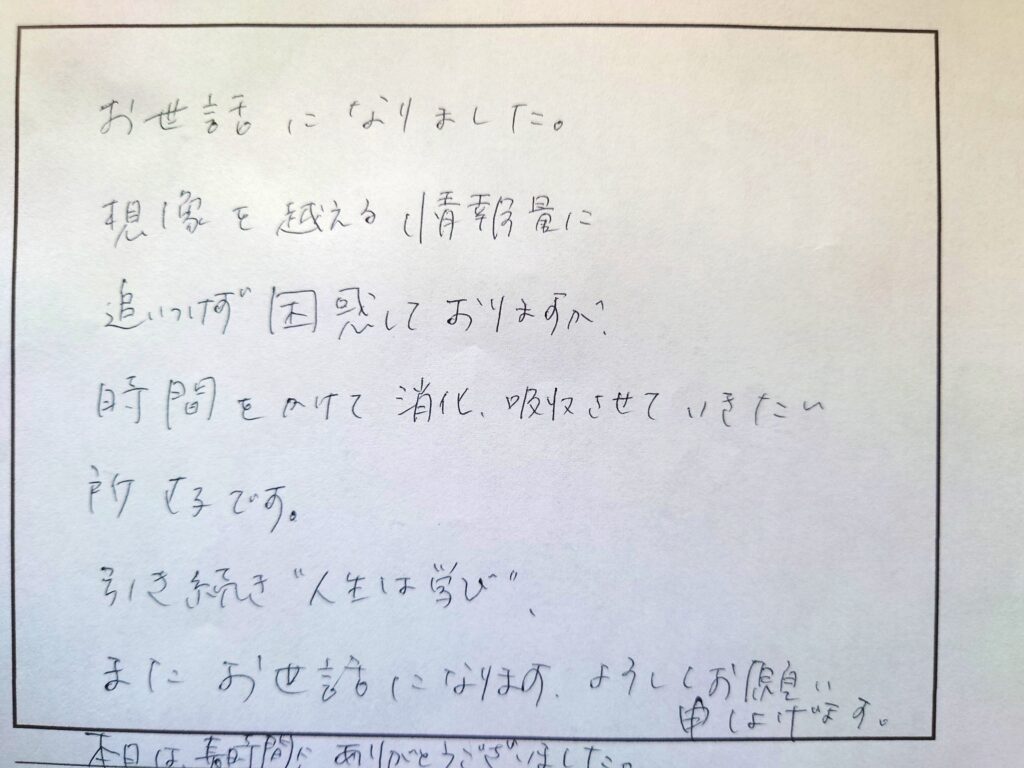 お世話になりました。
想像を越える情報量に
追いつけず困惑しておりますが、
時間をかけて消化、吸収させていきたい
所存です。
引き続き"人生は学び"、
またお世話になります。よろしくお願い
申し上げます。
本日は、長時間に ありがとうございました。